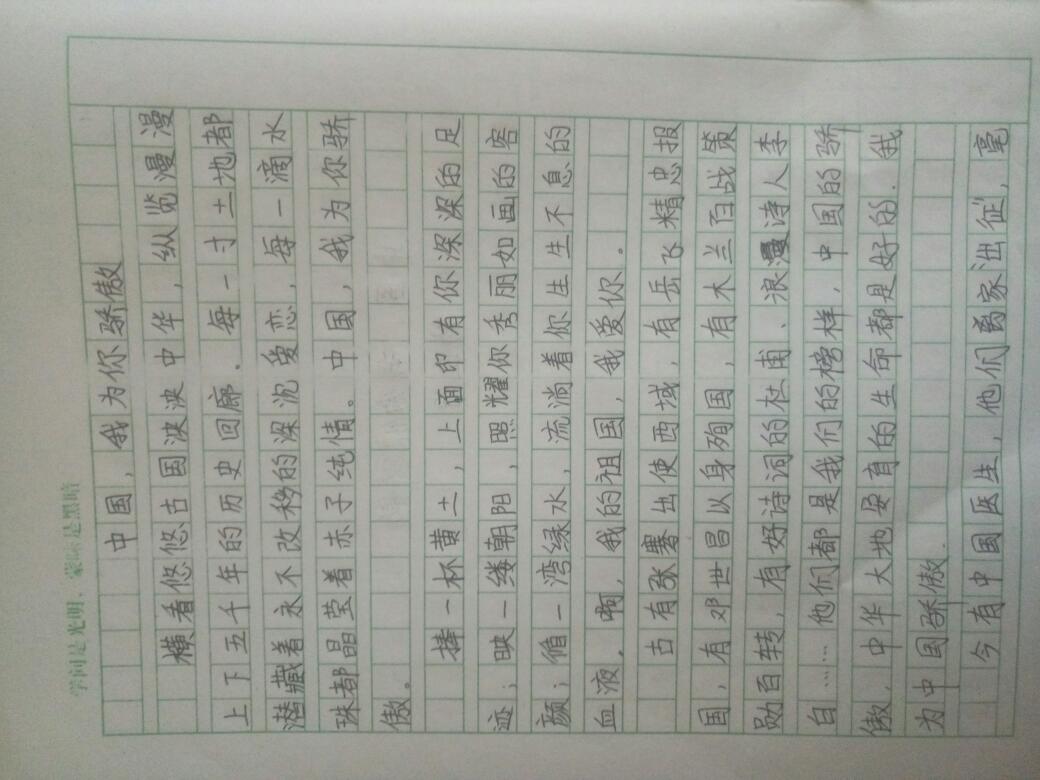 学问是光明，蒙昧是黑暗
中国，我为你骄傲
横看悠悠古国泱泱中华，纵览漫漫
上下五千年的历史回廊．每一寸土地都
潜藏着永不改移的深沉爱恋．每一滴水
珠都晶莹着赤子纯情。中国，我为你骄
傲。
捧一杯黄土，上面印有你深深的足
迹；映一缕朝阳，照耀你秀丽如画的容
颜；循一湾绿水，流淌着你生生不息的
血液．啊，我的祖国，我爱你．
古有张骞出使西域，有岳飞精忠报
国，有邓世昌以身殉国，有木兰百战策
勋百转，有好诗词的杜甫、浪漫诗人李
白……他们都是我们的榜样，中国的骄
傲．中华大地晏育的生命都是好的．我
为中国骄傲．
今有中国医生，他们离家出征，毫